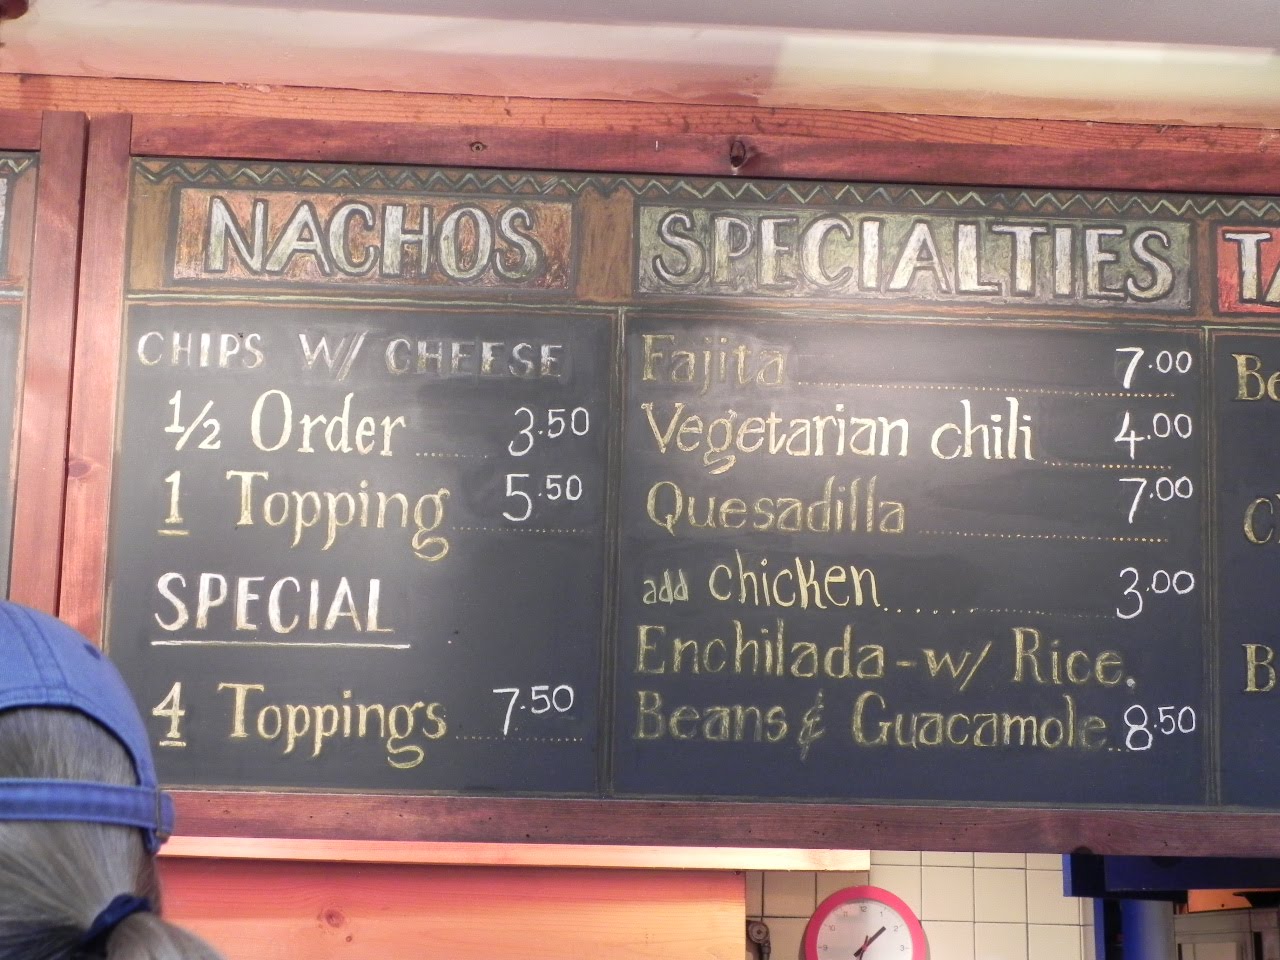 NACHOS
CHIPS W/ CHEESE
1/2 Order ...... 3.50
1 Topping ...... 5.50
SPECIAL
4 Toppings ...... 7.50
SPECIALTIES
Fajita ...... 7.00
Vegetarian chili ...... 4.00
Quesadilla ...... 7.00
add chicken ...... 3.00
Enchilada - w/ Rice,
Beans & Guacamole .. 8.50